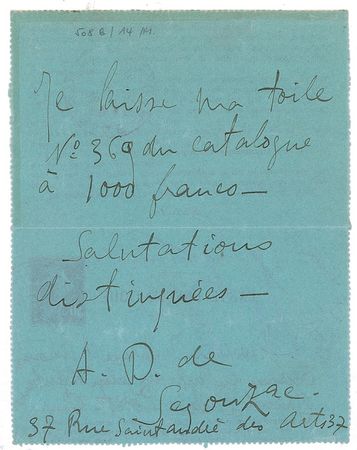 508 B / 14 M.
Je laisse ma toile
Nº 369 du catalogue
à 1000 francs —
Salutations
distinguées —
A. D. de
Segonzac.
37 Rue Saint andré des Arts 37